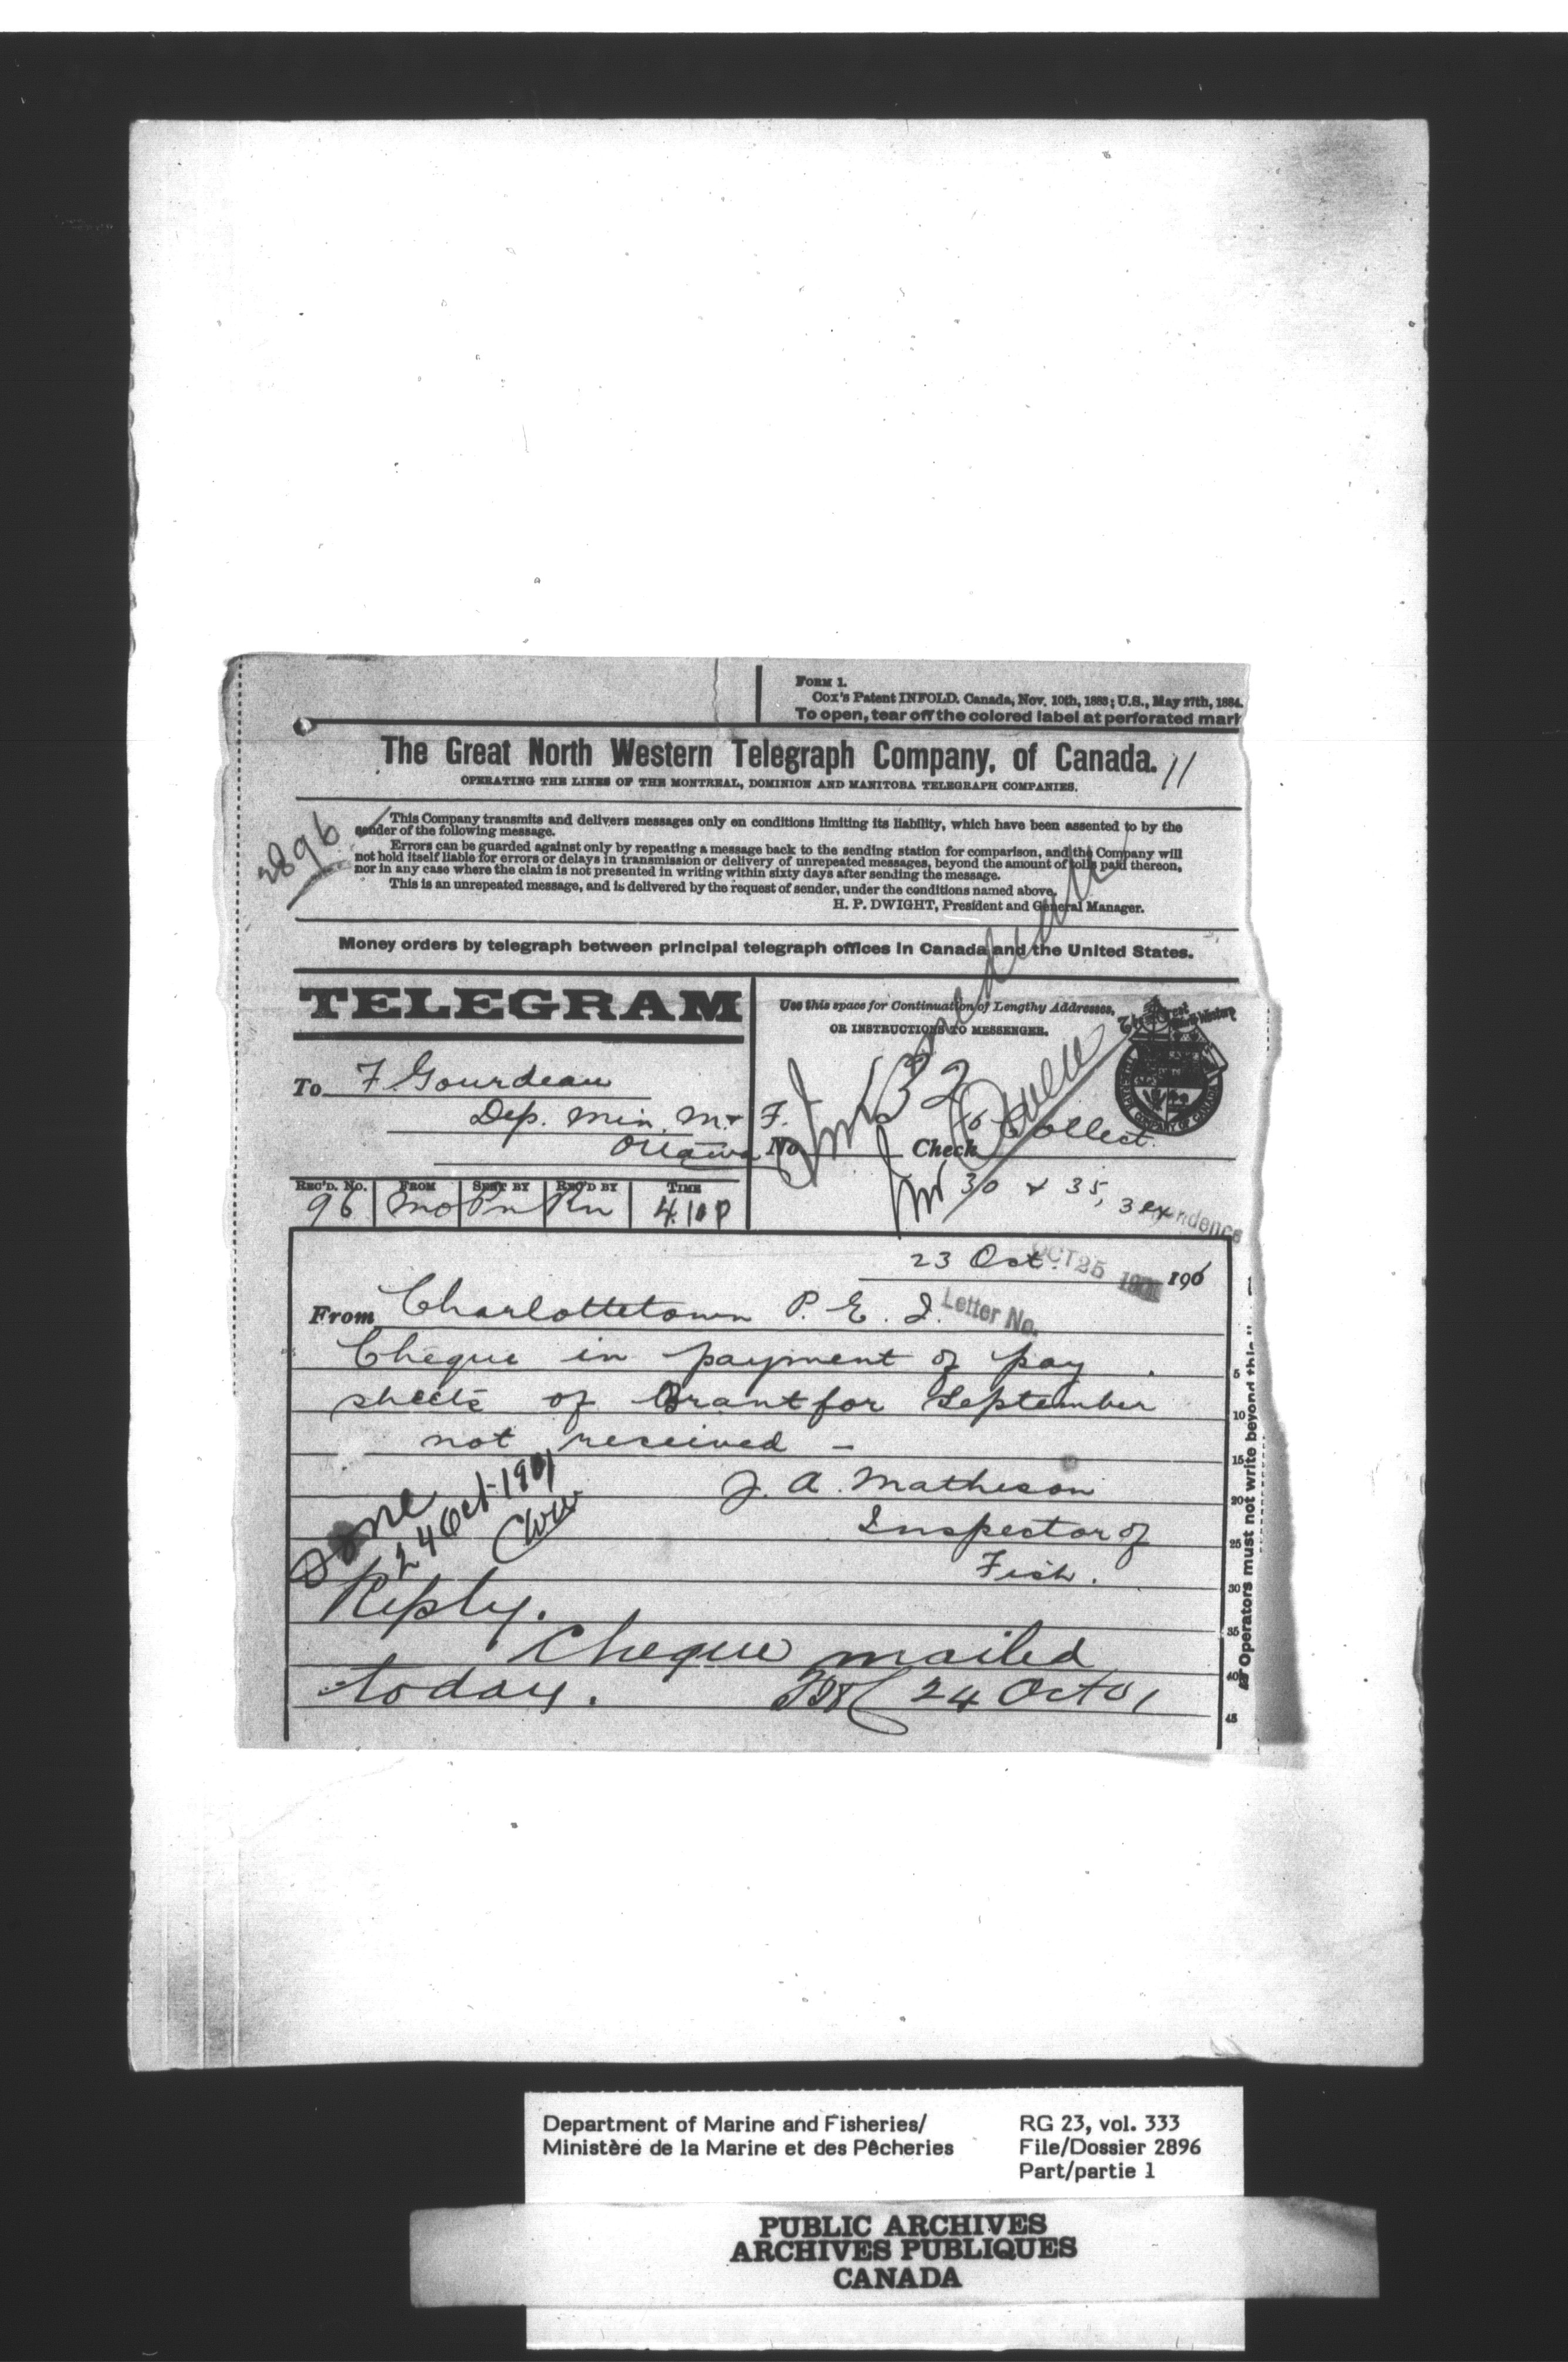 FORM 1.
Cox's Patent INFOLD. Canada, Nov. 10th, 1883; U.S., May 27th, 1884.
To open, tear off the colored label at perforated mark
The Great North Western Telegraph Company, of Canada.
11
OPERATING THE LINES OF THE MONTREAL, DOMINION AND MANITOBA TELEGRAPH COMPANIES.
2896
This Company transmits and delivers messages only on conditions limiting its liability, which have been assented to by the
sender of the following message.
Errors can be guarded against only by repeating a message back to the sending station for comparison, and the Company will
not hold itself liable for errors or delays in transmission or delivery of unrepeated messages, beyond the amount of tolls paid thereon,
nor in any case where the claim is not presented in writing within sixty days after sending the message.
This is an unrepeated message, and is delivered by the request of sender, under the conditions named above.
H. P. DWIGHT, President and General Manager.
Money orders by telegraph between principal telegraph offices in Canada and the United States.
TELEGRAM
Use this space for Continuation of Lengthy Addresses,
OR INSTRUCTIONS TO MESSENGER.
132
To F. Gourdeau
Dep. Min. M. & F.
Ottawa
No. Check Collect.
30 & 35, 3 ex
REC'D. No. FROM SENT BY REC'D BY TIME
96 Mo Pn Rn 4.10 P
23 Oct. 190
OCT 25
Letter No.
From Charlottetown P. E. I.
Cheque in payment of pay
sheets of Brant for September
not received –
J. A. Matheson
Inspector of
Fish.
Done
24 Oct. 1901
Reply.
Cheque mailed
today. 24 Oct 01
5
10
15
20
25
30
35
40
45
Operators must not write beyond this
Department of Marine and Fisheries/
Ministère de la Marine et des Pêcheries
RG 23, vol. 333
File/Dossier 2896
Part/partie 1
PUBLIC ARCHIVES
ARCHIVES PUBLIQUES
CANADA